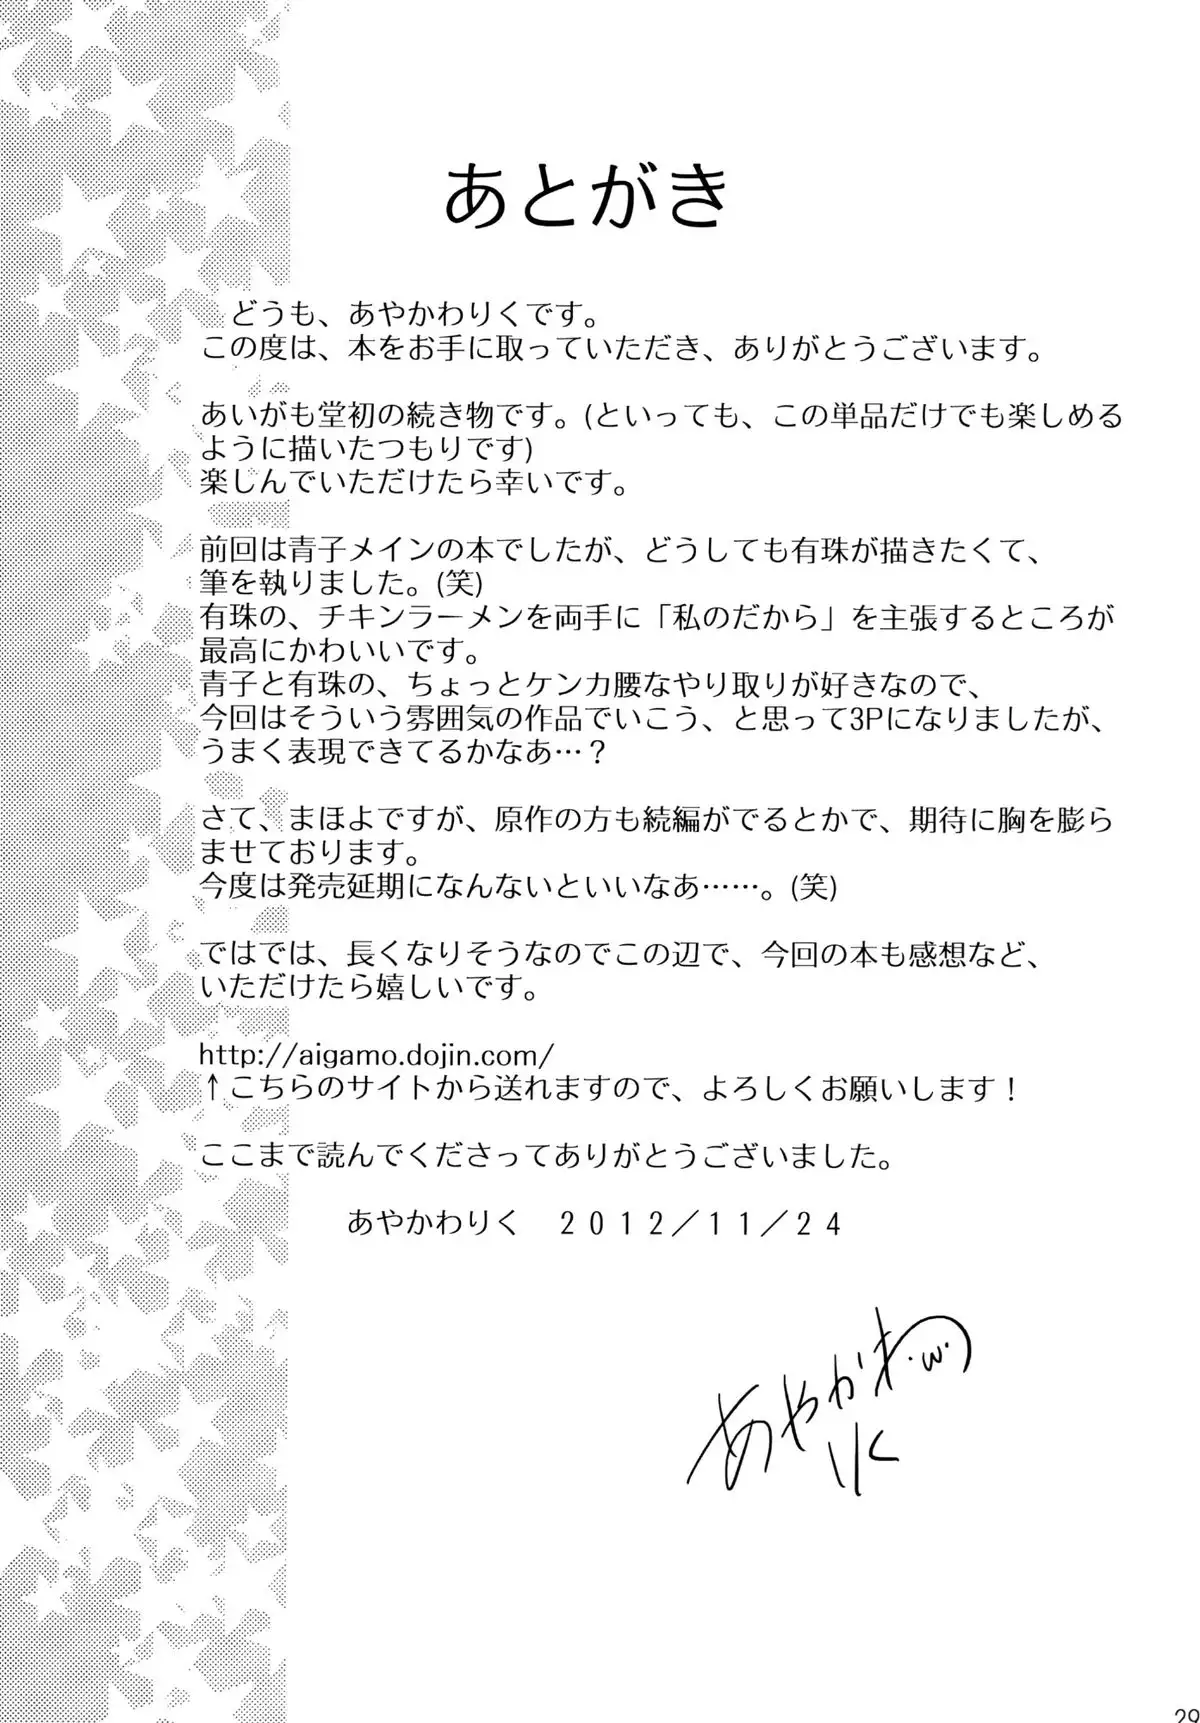 あとがき
どうも、あやかわりくです。
この度は、本をお手に取っていただき、ありがとうございます。
あいがも堂初の続き物です。(といっても、この単品だけでも楽しめる
ように描いたつもりです)
楽しんでいただけたら幸いです。
前回は青子メインの本でしたが、どうしても有珠が描きたくて、
筆を執りました。(笑)
有珠の、チキンラーメンを両手に「私のだから」を主張するところが
最高にかわいいです。
青子と有珠の、ちょっとケンカ腰なやり取りが好きなので、
今回はそういう雰囲気の作品でいこう、と思って3Pになりましたが、
うまく表現できてるかなあ…？
さて、まほよですが、原作の方も続編がでるとかで、期待に胸を膨ら
ませております。
今度は発売延期になんないといいなあ……。(笑)
ではでは、長くなりそうなのでこの辺で、今回の本も感想など、
いただけたら嬉しいです。
http://aigamo.dojin.com/
↑こちらのサイトから送れますので、よろしくお願いします！
ここまで読んでくださってありがとうございました。
あやかわりく　２０１２／１１／２４
あやかわ
りく
29